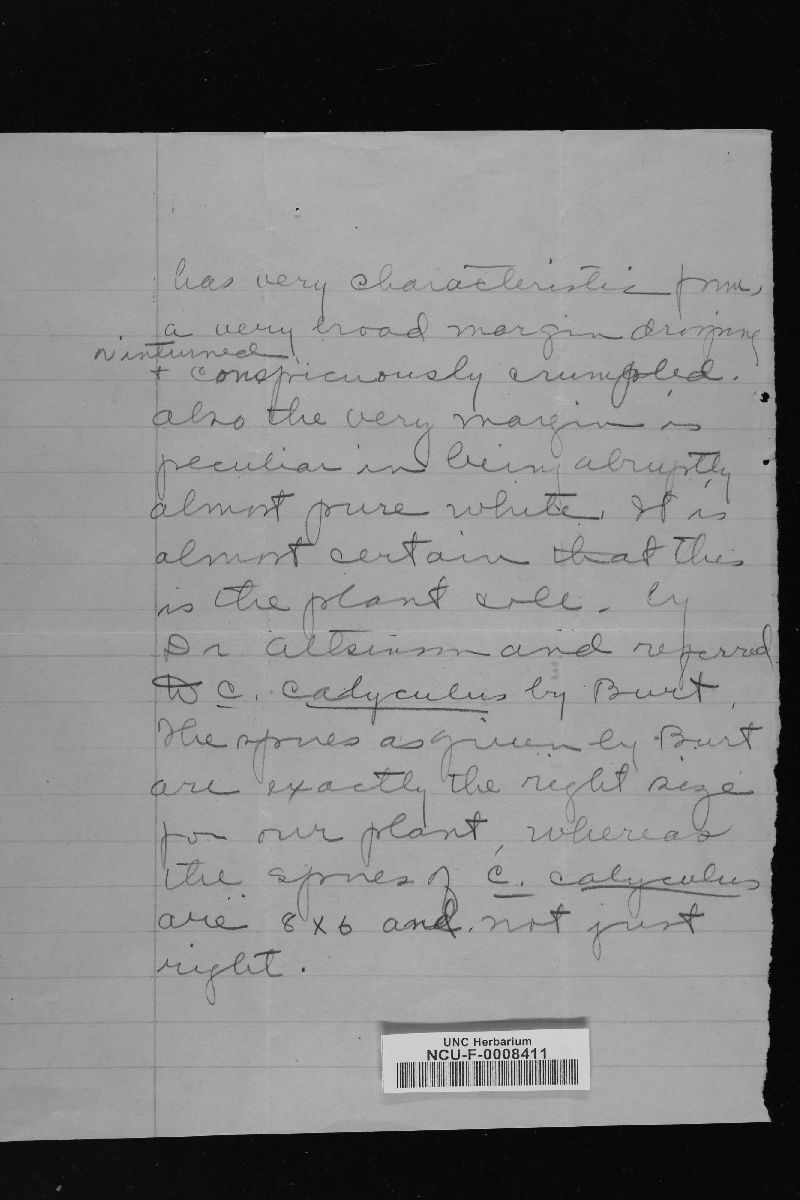 has very characteristic form,
a very broad margin drooping
or inturned
+ conspicuously crumpled.
also the very margin is
peculiar in being abruptly
almost pure white. It is
almost certain that this
is the plant coll. by
Dr Atkinson and referred
to C. calyculus by Burt.
The spores as given by Burt
are exactly the right size
for our plant, whereas
the spores of C. calyculus
are 8 x 6 and not just
right.
UNC Herbarium
NCU-F-0008411